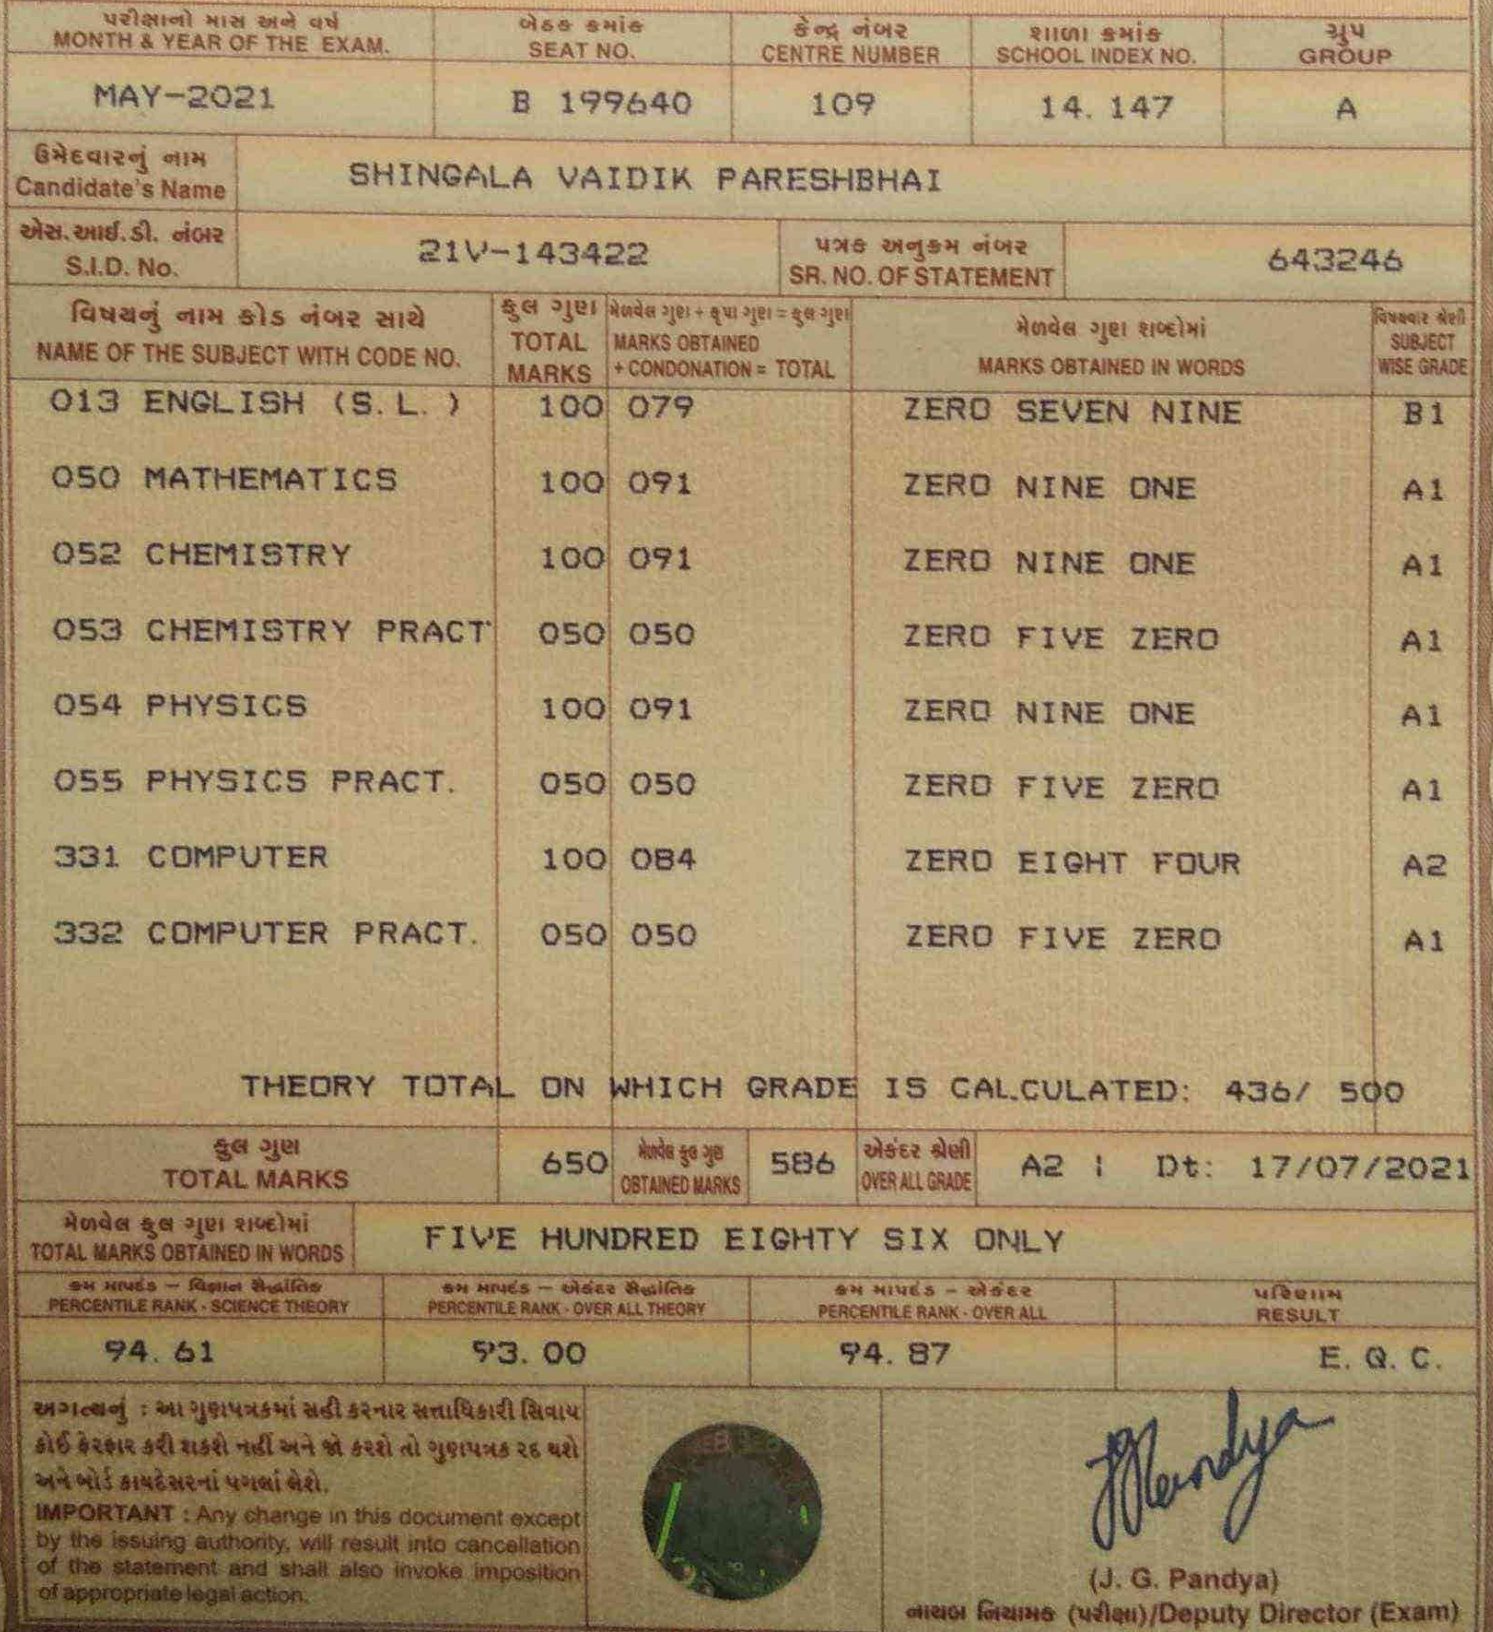 પરીક્ષાનો માસ અને વર્ષ બેઠક ક્રમાંક કેન્દ્ર નંબર શાળા ક્રમાંક ગ્રુપ
MONTH & YEAR OF THE EXAM. SEAT NO. CENTRE NUMBER SCHOOL INDEX NO. GROUP
MAY-2021 B 199640 109 14. 147 A
ઉમેદવારનું નામ
Candidate's Name SHINGALA VAIDIK PARESHBHAI
એસ.આઈ.ડી. નંબર પત્રક અનુક્રમ નંબર
S.I.D. No. 21V-143422 SR. NO. OF STATEMENT 643246
વિષયનું નામ કોડ નંબર સાથે કુલ ગુણ મેળવેલ ગુણ + કૃપા ગુણ = કુલ ગુણ મેળવેલ ગુણ શબ્દોમાં વિષયવાર શ્રેણી
NAME OF THE SUBJECT WITH CODE NO. TOTAL MARKS MARKS OBTAINED + CONDONATION = TOTAL MARKS OBTAINED IN WORDS SUBJECT WISE GRADE
013 ENGLISH (S.L.) 100 079 ZERO SEVEN NINE B1
050 MATHEMATICS 100 091 ZERO NINE ONE A1
052 CHEMISTRY 100 091 ZERO NINE ONE A1
053 CHEMISTRY PRACT 050 050 ZERO FIVE ZERO A1
054 PHYSICS 100 091 ZERO NINE ONE A1
055 PHYSICS PRACT. 050 050 ZERO FIVE ZERO A1
331 COMPUTER 100 084 ZERO EIGHT FOUR A2
332 COMPUTER PRACT. 050 050 ZERO FIVE ZERO A1
THEORY TOTAL ON WHICH GRADE IS CALCULATED: 436/ 500
કુલ ગુણ મેળવેલ કુલ ગુણ એકંદર શ્રેણી
TOTAL MARKS 650 OBTAINED MARKS 586 OVER ALL GRADE A2 | Dt: 17/07/2021
મેળવેલ કુલ ગુણ શબ્દોમાં
TOTAL MARKS OBTAINED IN WORDS FIVE HUNDRED EIGHTY SIX ONLY
ક્રમ માપદંડ - વિજ્ઞાન સૈદ્ધાંતિક ક્રમ માપદંડ - એકંદર સૈદ્ધાંતિક ક્રમ માપદંડ - એકંદર પરિણામ
PERCENTILE RANK - SCIENCE THEORY PERCENTILE RANK - OVER ALL THEORY PERCENTILE RANK - OVER ALL RESULT
94. 61 93. 00 94. 87 E. Q. C.
અગત્યનું : આ ગુણપત્રકમાં સહી કરનાર સત્તાધિકારી સિવાય
કોઈ ફેરફાર કરી શકશે નહીં અને જો કરશે તો ગુણપત્રક રદ થશે
અને બોર્ડ કાયદેસરનાં પગલાં લેશે.
IMPORTANT : Any change in this document except
by the issuing authority, will result into cancellation
of the statement and shall also invoke imposition
of appropriate legal action.
(J. G. Pandya)
નાયબ નિયામક (પરીક્ષા)/Deputy Director (Exam)